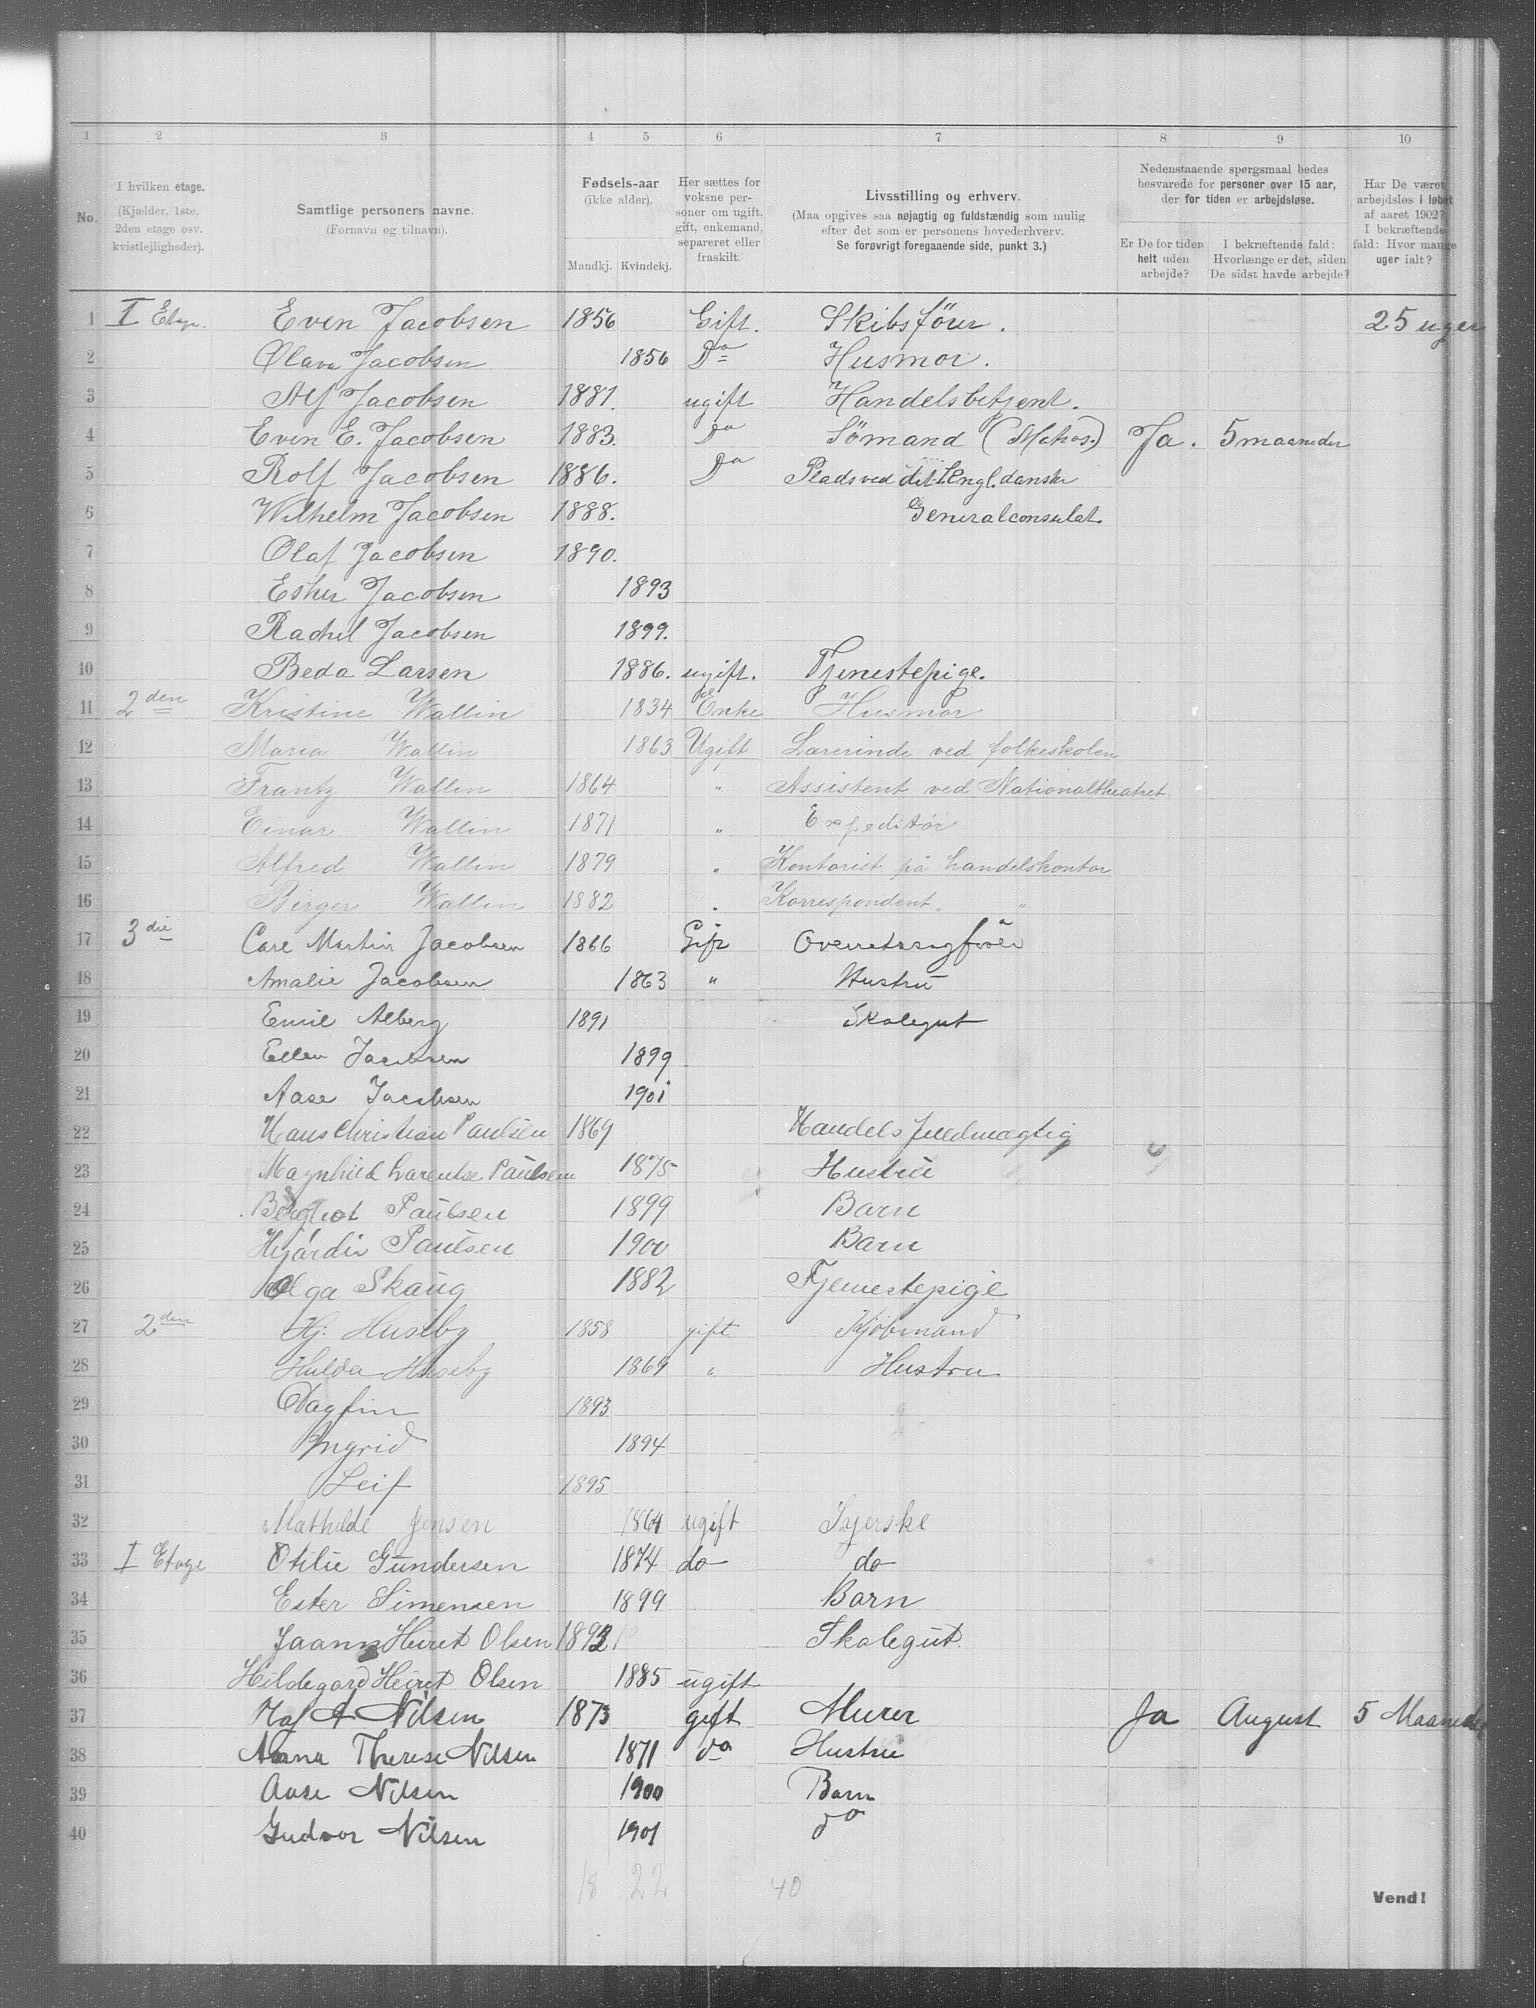 1 2 3 4 5 6 7 8 9 10
No.
I hvilken etage.
(Kjælder, 1ste,
2den etage osv.
kvistlejligheder).
Samtlige personers navne.
(Fornavn og tilnavn).
Fødsels-aar
(ikke alder).
Mandkj. Kvindekj.
Her sættes for
voksne per-
soner om ugift,
gift, enkemand,
separeret eller
fraskilt.
Livsstilling og erhverv.
(Maa opgives saa nøjagtig og fuldstændig som mulig
efter det som er personens hovederhverv.
Se forøvrigt foregaaende side, punkt 3.)
Nedenstaaende spørgsmaal bedes
besvarede for personer over 15 aar,
der for tiden er arbejdsløse.
Er De for tiden
helt uden
arbejde?
I bekræftende fald:
Hvorlænge er det, siden
De sidst havde arbejde?
Har De været
arbejdsløs i løbet
af aaret 1902?
I bekræftende
fald: Hvor mange
uger ialt?
1 I Etage. Even Jacobsen 1856 Gift. Skibsförer. 25 uger
2 Olava Jacobsen 1856 Do Husmor.
3 Alf Jacobsen 1881. ugift Handelsbetjent.
4 Even E. Jacobsen 1883. Do Sömand (Matros.) Ja. 5 maaneder
5 Rolf Jacobsen 1886. Do Plads ved det Engl. danske
6 Wilhelm Jacobsen 1888. Generalconsulat.
7 Olaf Jacobsen 1890.
8 Esther Jacobsen 1893
9 Rachel Jacobsen 1899.
10 Beda Larsen 1886. ugift. Tjenestepige.
11 2den Kristine Wallin 1834 Enke Husmor
12 Maria Wallin 1863 Ugift Lærerinde ved folkeskolen
13 Frantz Wallin 1864 " Assistent ved Nationaltheatret.
14 Einar Wallin 1871 " Expeditör
15 Alfred Wallin 1879 " Kontorist på handelskontor
16 Birger Wallin 1882 " Korrespondent " "
17 3die Carl Martin Jacobsen 1866 Gift Overretssagfører
18 Amalie Jacobsen 1863 " Hustru
19 Emil Alberg 1891 Skolegut
20 Ellen Jacobsen 1899
21 Aase Jacobsen 1901
22 Hans Christian Paulsen 1869 Handelsfuldmægtig
23 Magnhild Larentse Paulsen 1875 Hustru
24 Bergliot Paulsen 1899 Barn
25 Hjördis Paulsen 1900 Barn
26 Olga Skaug 1882 Tjenestepige
27 2den Hj. Huseby 1858 gift Kjöbmand
28 Hulda Huseby 1869 " Hustru
29 Dagfin 1893
30 Ingrid 1894
31 Leif 1895
32 Mathilde Jensen 1864 ugift Syerske
33 I Etage Otilie Gundersen 1874 do do
34 Ester Simensen 1899 Barn
35 Heiret Olsen 1893 Skolegut.
36 Hildegard Heiret Olsen 1885 ugift
37 A Nilsen 1873 gift Murer Ja August 5 Maaneder
38 Anna Therese Nilsen 1871 do Hustru
39 Aase Nilsen 1900 Barn
40 Gudvor Nilsen 1901 do
18 22 40
Vend!